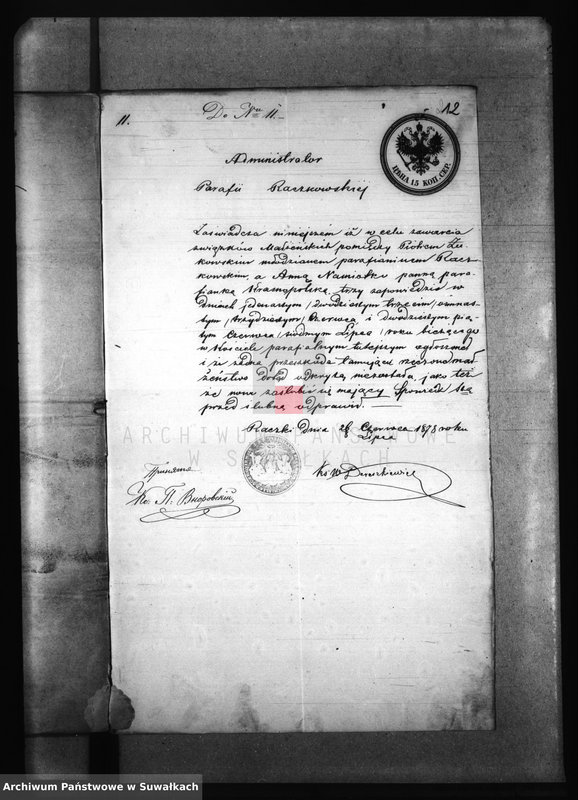 11.
Do Nru 11
12
ЦѢНА 15 КОП. СЕР.
Administrator
Parafii Raczkowskiej
Zaświadcza niniejszem iż w celu zawarcia
związków Małżeńskich pomiędzy Piotrem Żu-
kowskim młodzianem parafianinem Racz-
kowskim, a Anną Namiotko panną para-
fianką Krasnopolską, trzy zapowiedzie w
dniach jedenastym /dwudziestym trzecim/, ośmnas-
tym /trzydziestym/ Czerwca i dwudziestym pią-
tym Czerwca /siódmym Lipca/ roku bieżącego
w Kościele parafialnym tutejszym wygłoszone
i że żadna przeszkoda tamująca rzeczone mał-
żeństwo dotąd odkrytą niezostała, jako też
że nowo zaślubić się mający Spowiedź
przed ślubną odprawił.
Raczki Dnia Czerwca 1895 roku
Lipca
Кс. П. Вноровскій
Ks W
ARCHIWUM PAŃSTWOWE
W SUWAŁKACH
Archiwum Państwowe w Suwałkach